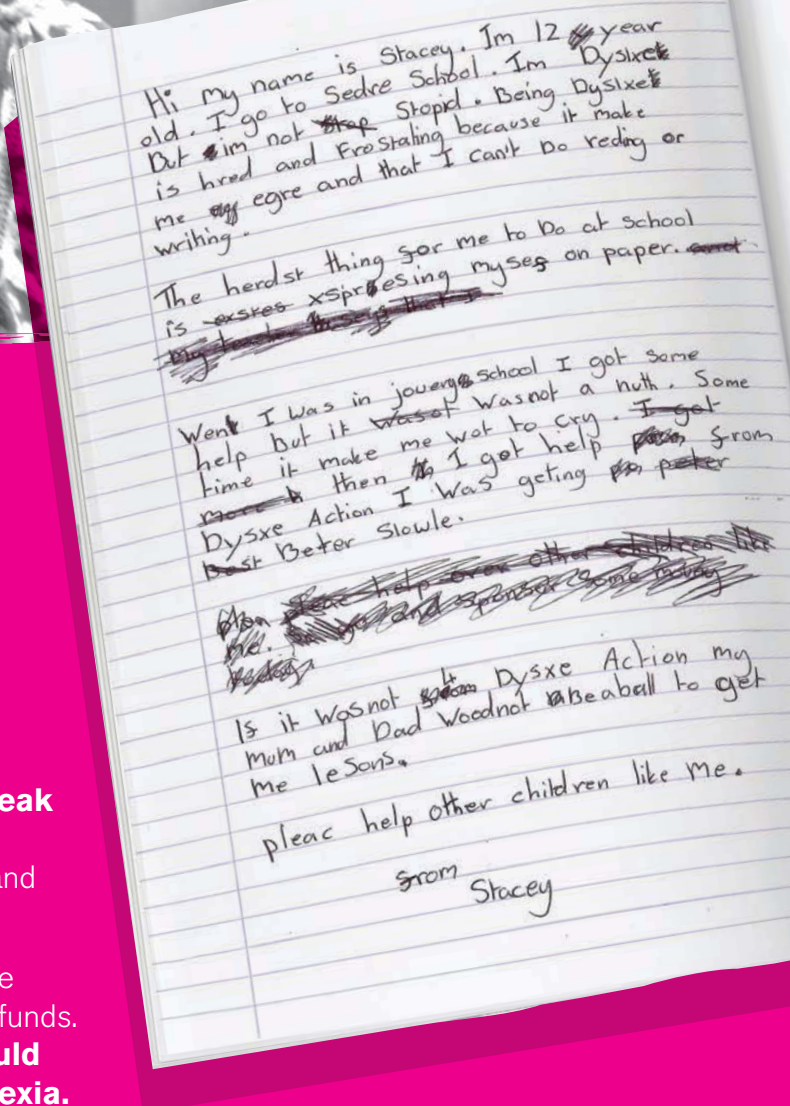 Hi my name is Stacey. Im 12 year
old. I go to Sedre School. Im Dyslxet
But im not Stopid. Being Dyslxet
is hred and Frostaling because it make
me egre and that I can't Do reding or
writing.
The herdst thing for me to Do at school
is exstes xspresing mysef on paper.
Went I was in jouery school I got some
help but it Wasot Wasnot a nuth. Some
time it make me wot to cry. I got
then I got help from
Dysxe Action I was geting peter
Best Beter Slowle.
pleac help over other children like
me. and sponser some money
Is it wosnot 4 Dysxe Action my
mum and Dad Woodnot Beaball to get
me lesons.
pleac help other children like me.
from
Stacey
eak
and
e
funds.
uld
exia.